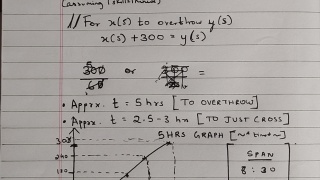 (assuming
// For x(s) to overthrow y(s)
x(s) + 300 = y(s)
5
300 or =
60
• Apprx. t = 5 hrs [TO OVERTHROW]
• Apprx. t = 2.5-3 hn [TO JUST CROSS]
5 HRS GRAPH [~* time *~]
300
240
180
SPAN
8:30